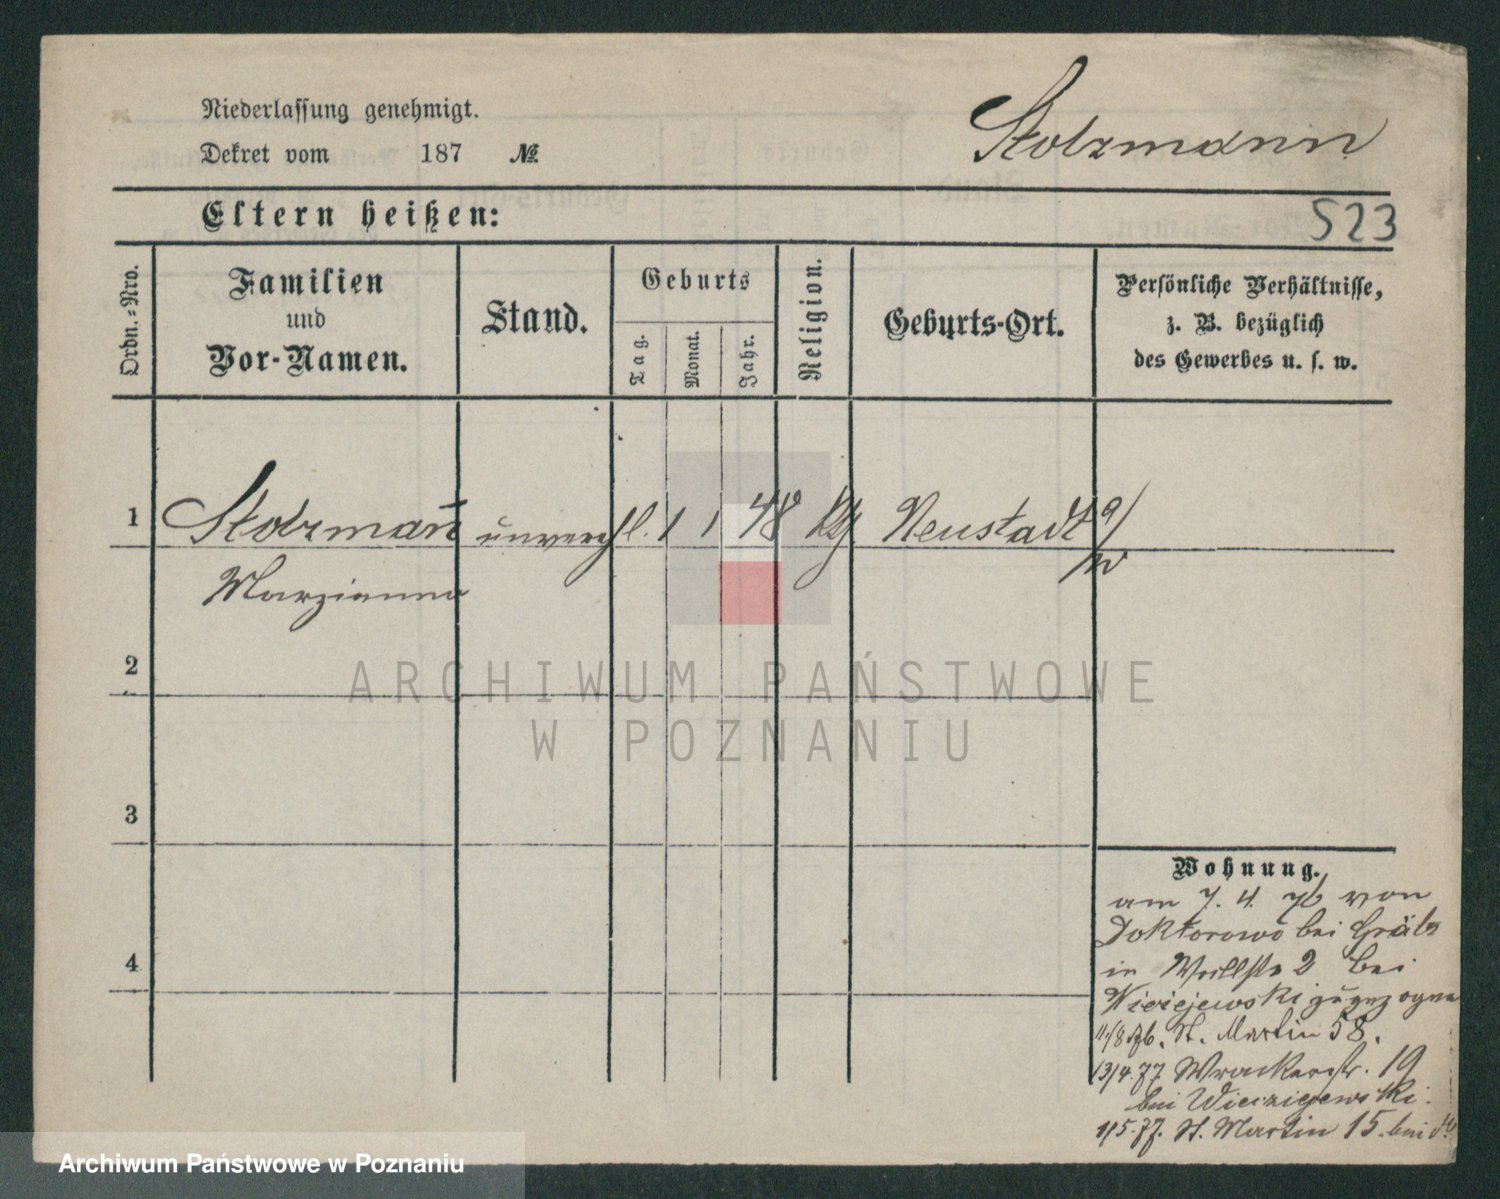 Niederlassung genehmigt.
Dekret vom 187 №
Stolzmann
Eltern heißen:
523
Ordn.-Nro.
Familien
und
Vor-Namen.
Stand.
Geburts
Tag.
Monat.
Jahr.
Religion.
Geburts-Ort.
Persönliche Verhältnisse,
z. B. bezüglich
des Gewerbes u. s. w.
1 Stolzmann unverehl. 1 1 48 Neustadt a/
W
Marzianna
2
ARCHIWUM PAŃSTWOWE
W POZNANIU
3
4
Wohnung.
am 7. 4. 76 von
Doktorowo bei Grätz
in 2 bei
zugezogen
11/8 76. St. Martin 58.
13/4. 77 Wronkerstr. 19
bei
1/5. 77. St. Martin 15. bei
Archiwum Państwowe w Poznaniu